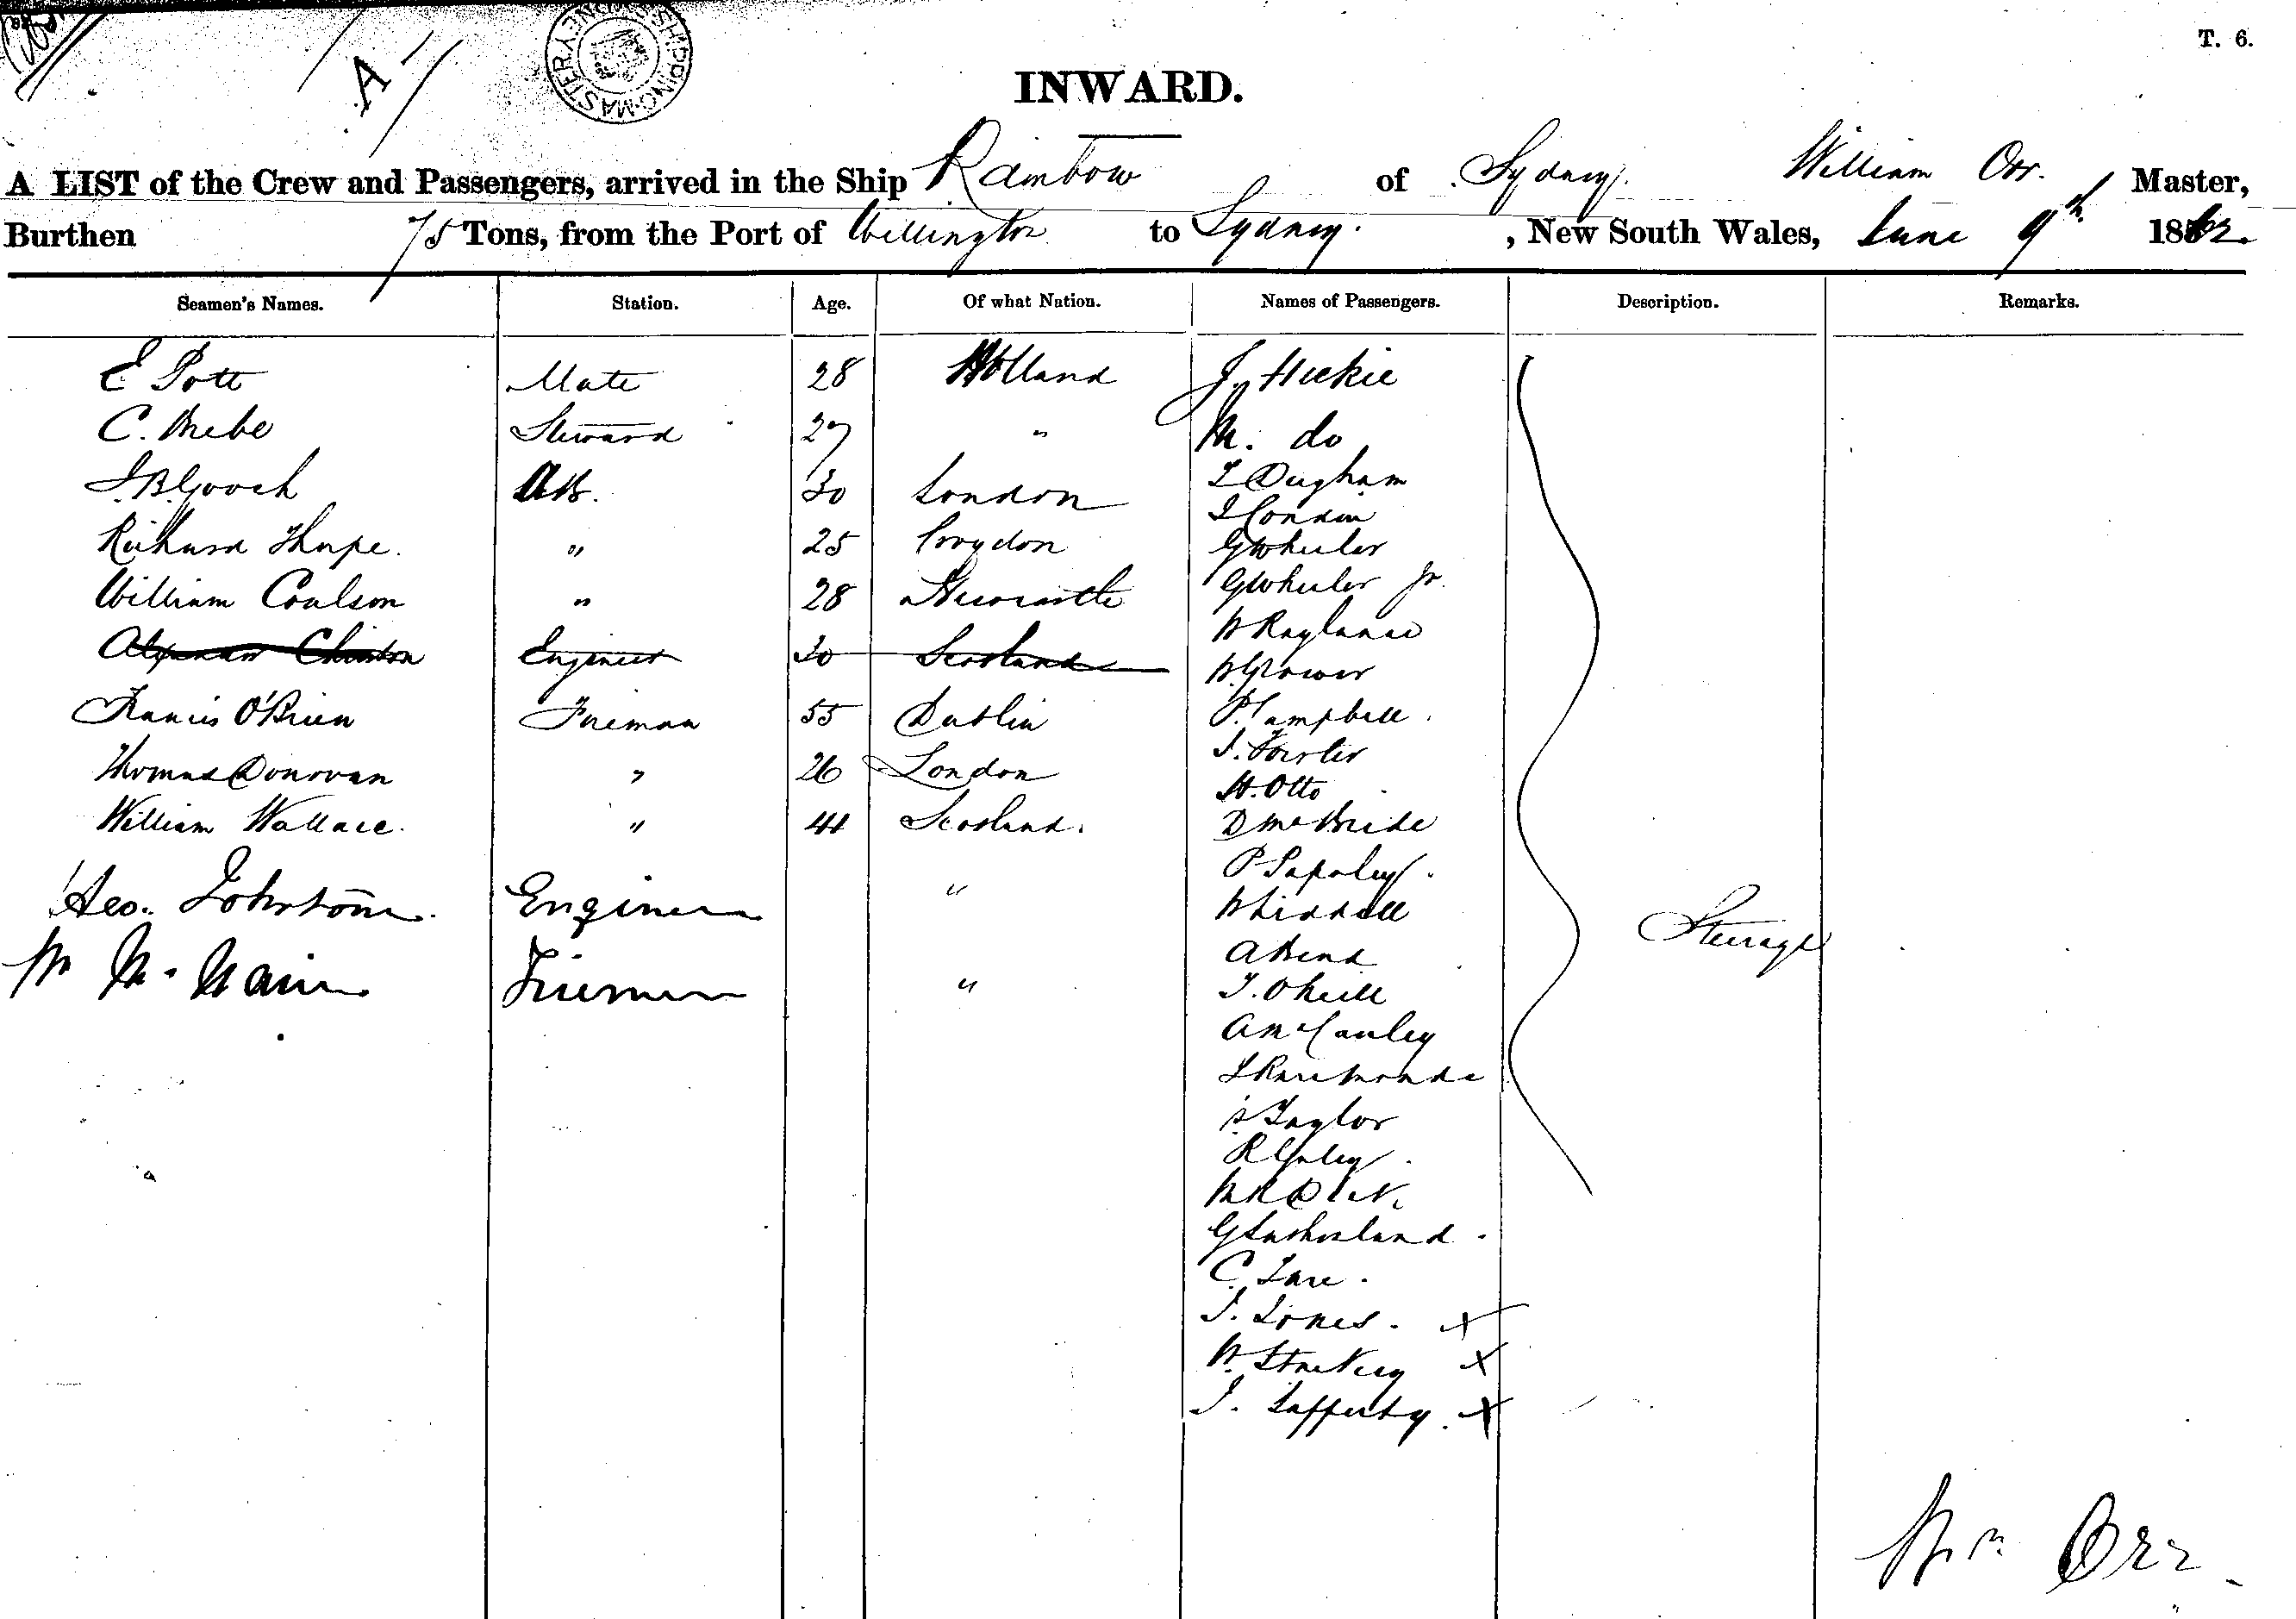 T. 6.
A
SHIPPING MASTER
INWARD.
A LIST of the Crew and Passengers, arrived in the Ship Rainbow of Sydney. William Orr. Master,
Burthen 75 Tons, from the Port of Willington to Sydney. , New South Wales, June 9th 1862.
Seamen's Names. Station. Age. Of what Nation. Names of Passengers. Description. Remarks.
E Pott Mate 28 Holland J. Hickie
C. Steward 27 " M. do
J.B. Gooch AB. 30 London
Richard Thorpe. " 25 Croydon J Condin
William Coulson " 28 Newcastle G Wheeler
Engineer 30 Scotland G Wheeler Jr.
Francis O'Brien Fireman 55 Dublin W
Thomas Donovan " 26 London W
William Wallace. " 41 Scotland. P. Campbell.
Geo. Johnstone. Engineer " J. Forster
Wm M. Nair Fireman " H. Otto
D McBride
P
W Liddell
A Bend
T. O Neill
A McCauley
Taylor
Steerage
G Sutherland.
C.
J. Jones. X
W. X
J. Lafferty. X
Wm Orr.